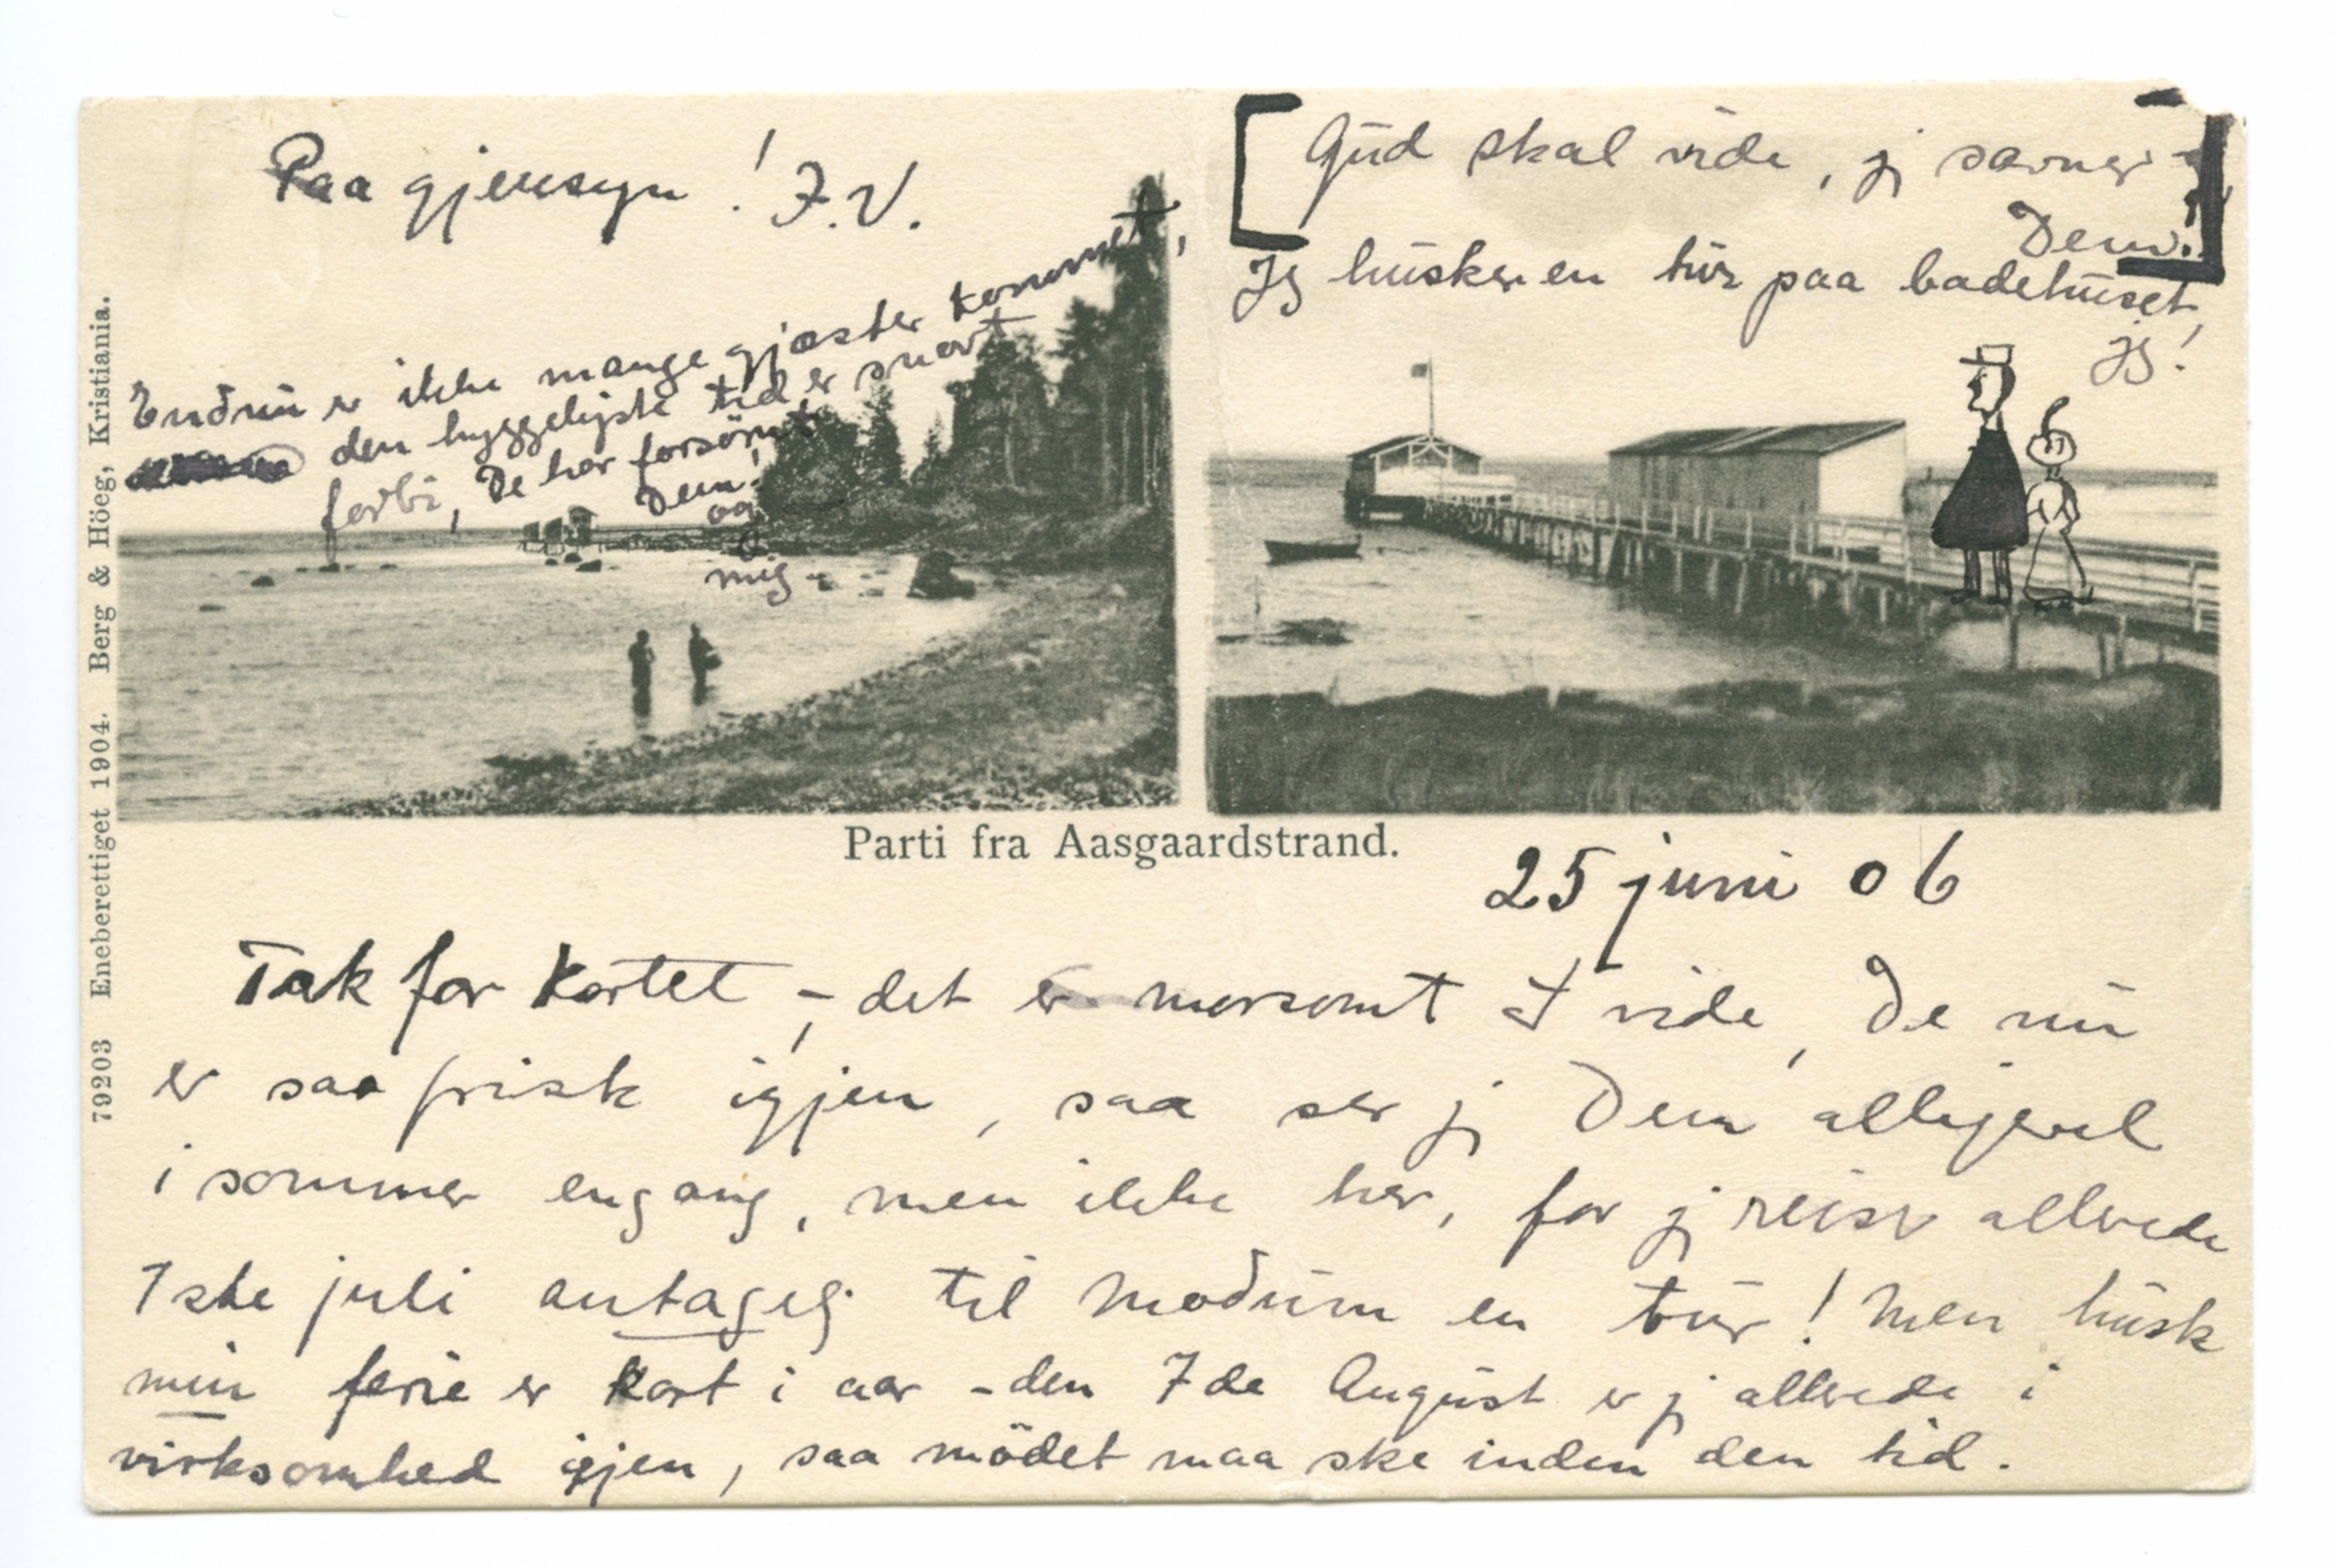 Paa gjensyn! J.V.
Endnu er ikke mange gjæster kommet,
den hyggeligste tid er snart
forbi, De har forsömt
Dem!
og
mig
Gud skal vide, jg savner
Dem.
Jg husker en tur paa badehuset,
jg!
Parti fra Aasgaardstrand.
79203 Eneberettiget 1904. Berg & Höeg, Kristiania.
25 juni 06
Tak for Kortet, – det er morsomt at vide, De nu
er saa frisk igjen, saa ser jg Dem alligevel
i sommer engang, men ikke her, for jg reiser allerede
1ste juli antagelig til Modum en tur! Men husk
min ferie er kort i aar – den 7de August er jg allerede i
virksomhed igjen, saa mödet maa ske inden den tid.